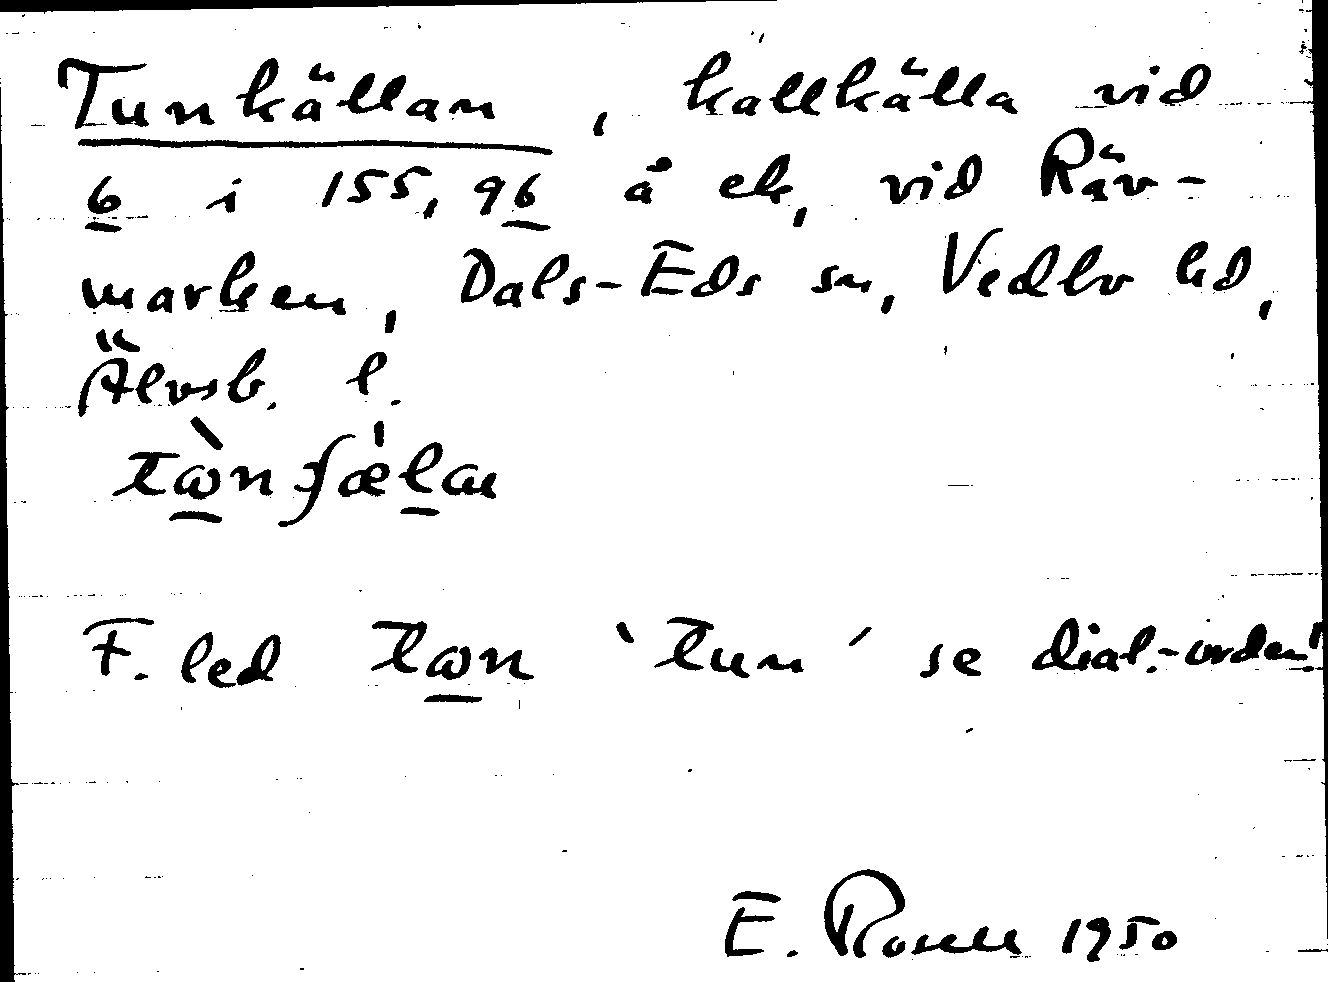 Tunkällan, kallkälla vid
6 i 155,96 å ek, vid Räv-
marken, Dals-Eds sn, Vedbo hd,
Älvsb. l.
F. led 'tun' se dial.-orden!
E. Rosell 1950